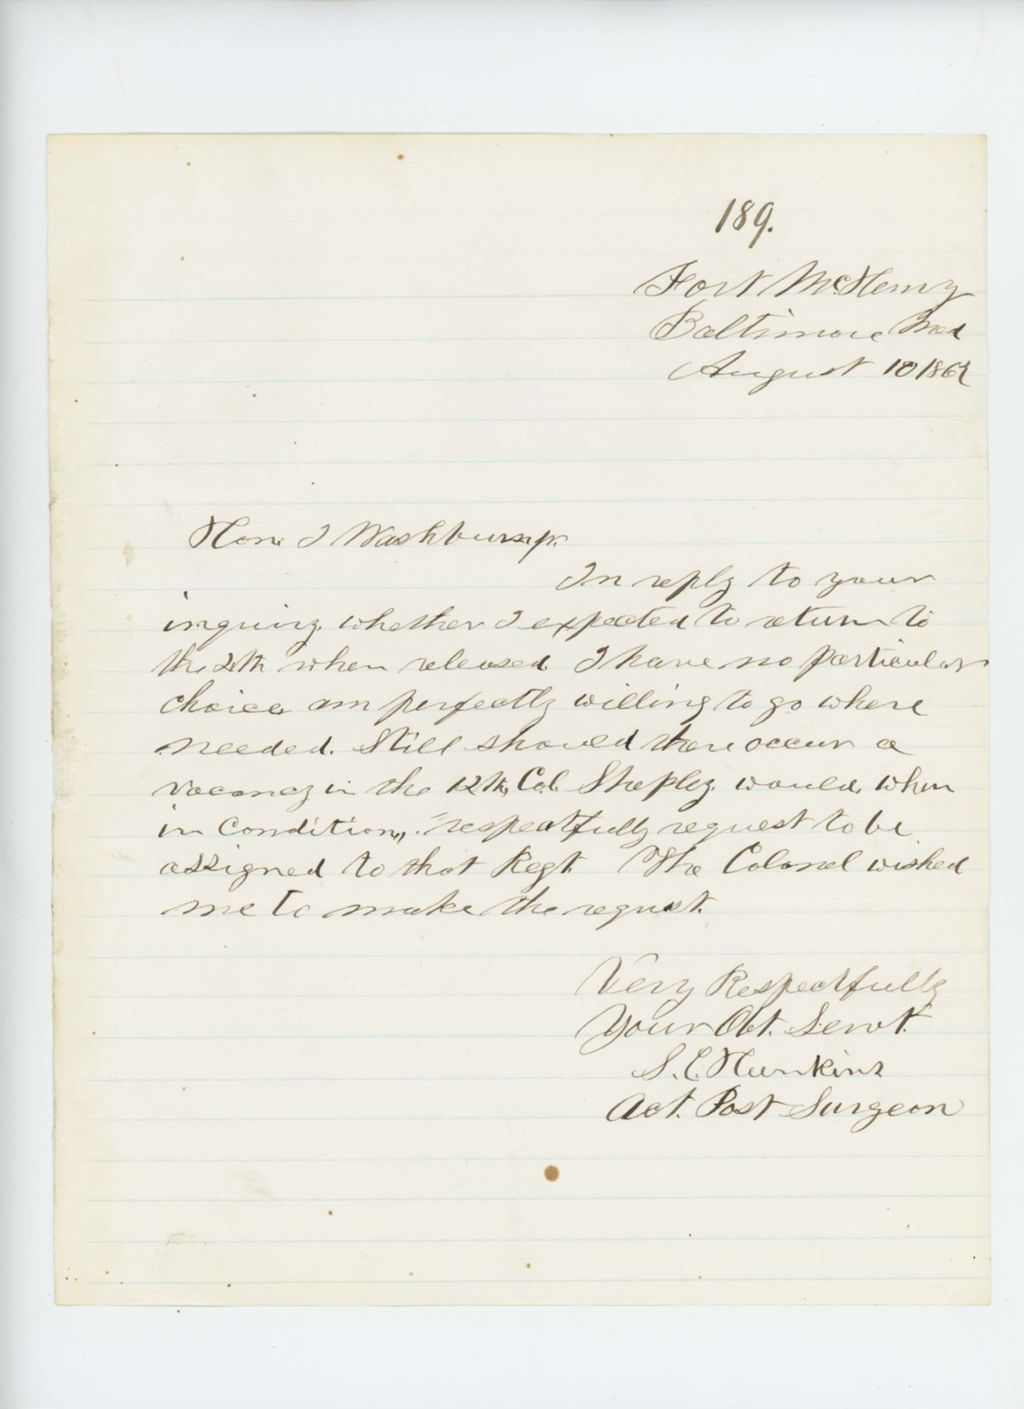 189.
Fort McHenry
Baltimore Md
August 10 1862
Hon I Washburn jr.
In reply to your
inquiry whether I expected to return to
the 2th when released I have no particular
choice am perfectly willing to go where
needed. Still should there occur a
vacancy in the 12th, Col. Shepley would, when
in condition, respectfully request to be
assigned to that Regt. The Colonel wished
me to make the request.
Very Respectfully
Your Obt. Servt.
S. C. Hunkins
Act. Post Surgeon